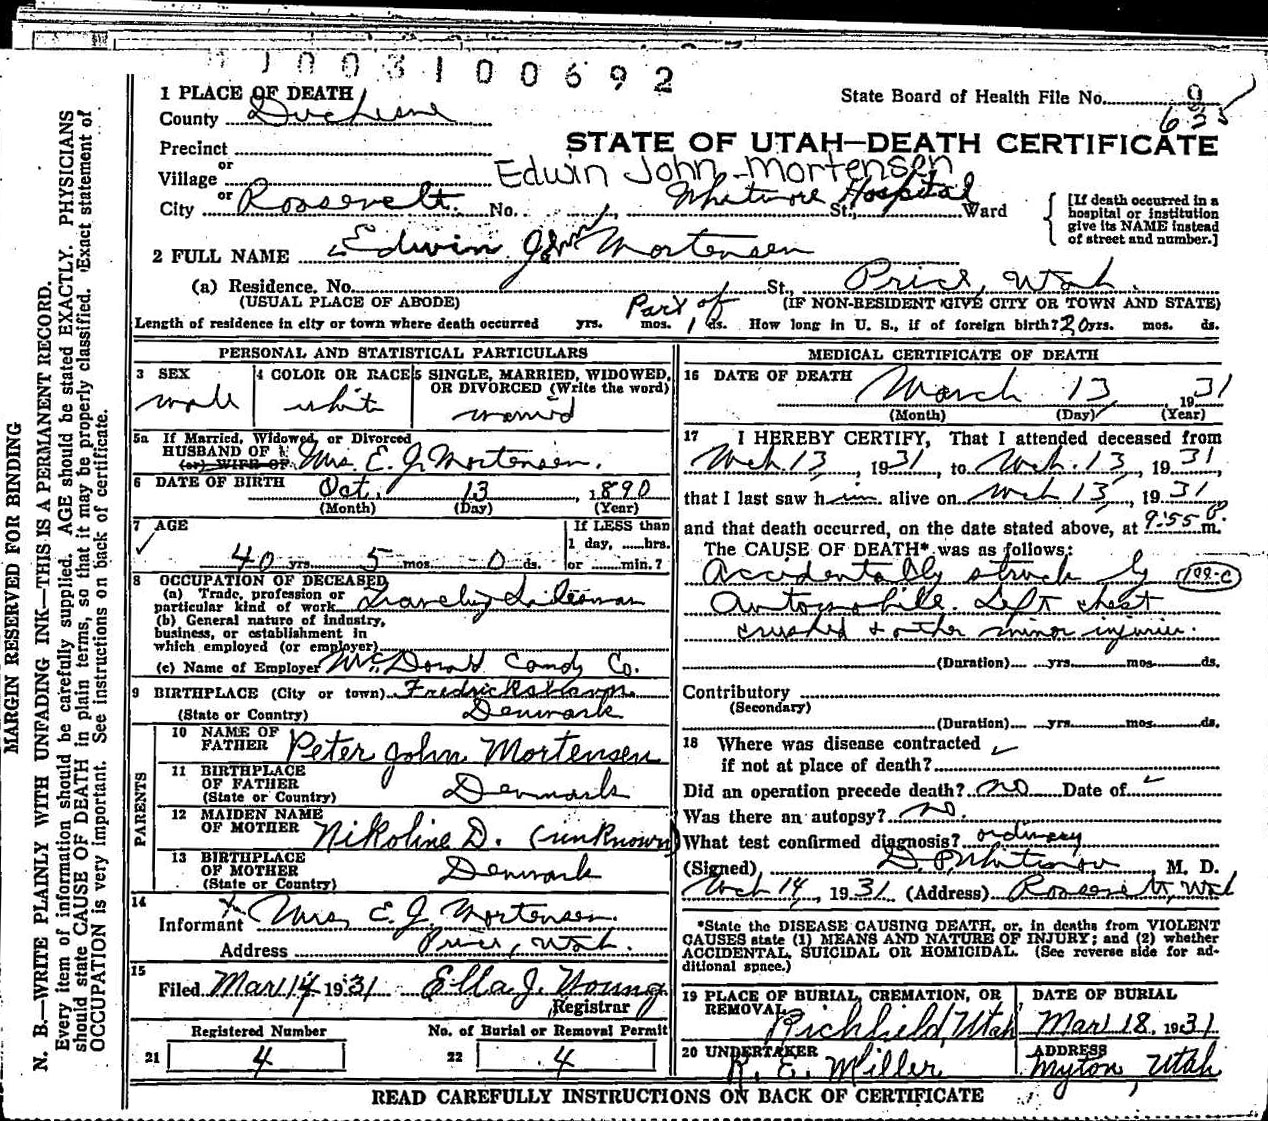 1003100692
1 PLACE OF DEATH
State Board of Health File No. 9
County Duchesne
635
STATE OF UTAH—DEATH CERTIFICATE
Precinct
or
Edwin John Mortensen
Village
or
City Roosevelt No. Whitmore Hospital St., Ward
[If death occurred in a hospital or institution give its NAME instead of street and number.]
2 FULL NAME Edwin John Mortensen
(a) Residence. No. St., Price, Utah.
(USUAL PLACE OF ABODE) (IF NON-RESIDENT GIVE CITY OR TOWN AND STATE)
Part of
Length of residence in city or town where death occurred yrs. mos. 1 ds. How long in U. S., if of foreign birth? 20 yrs. mos. ds.
PERSONAL AND STATISTICAL PARTICULARS
3 SEX
male
4 COLOR OR RACE
white
5 SINGLE, MARRIED, WIDOWED, OR DIVORCED (Write the word)
married
5a If Married, Widowed, or Divorced
HUSBAND OF
(or) WIFE OF Mrs. E. J. Mortensen.
6 DATE OF BIRTH Oct. 13, 1890
(Month) (Day) (Year)
7 AGE
40 yrs. 5 mos. 0 ds.
If LESS than
1 day, ......hrs.
or ......min.?
8 OCCUPATION OF DECEASED
(a) Trade, profession or
particular kind of work Traveling Salesman
(b) General nature of industry,
business, or establishment in
which employed (or employer)
(c) Name of Employer McDonald Candy Co.
9 BIRTHPLACE (City or town) Fredrickshavn.
(State or Country) Denmark
PARENTS
10 NAME OF
FATHER Peter John Mortensen
11 BIRTHPLACE
OF FATHER
(State or Country) Denmark
12 MAIDEN NAME
OF MOTHER Nikoline D. (unknown)
13 BIRTHPLACE
OF MOTHER
(State or Country) Denmark
14
Informant Mrs. E. J. Mortensen.
Address Price, Utah.
15
Filed Mar 14 1931 Ella J. Young
Registrar
Registered Number No. of Burial or Removal Permit
21 4 22 4
MEDICAL CERTIFICATE OF DEATH
16 DATE OF DEATH March 13, 1931
(Month) (Day) (Year)
17 I HEREBY CERTIFY, That I attended deceased from
Mch. 13, 1931, to Mch. 13, 1931,
that I last saw him alive on Mch 13, 1931
and that death occurred, on the date stated above, at 9:55 P m.
The CAUSE OF DEATH* was as follows:
Accidentally struck by
Automobile. Left chest
crushed & other minor injuries.
(Duration) yrs. mos. ds.
Contributory
(Secondary)
(Duration) yrs. mos. ds.
18 Where was disease contracted
if not at place of death?
Did an operation precede death? no Date of
Was there an autopsy? no.
What test confirmed diagnosis? ordinary
(Signed) D. P. Whitmore, M. D.
Mch 14, 1931 (Address) Roosevelt, Utah
*State the DISEASE CAUSING DEATH, or, in deaths from VIOLENT
CAUSES state (1) MEANS AND NATURE OF INJURY; and (2) whether
ACCIDENTAL, SUICIDAL OR HOMICIDAL. (See reverse side for ad-
ditional space.)
19 PLACE OF BURIAL, CREMATION, OR
REMOVAL
Richfield, Utah
DATE OF BURIAL
Mar 18, 1931
20 UNDERTAKER
R. E. Miller
ADDRESS
Myton, Utah
READ CAREFULLY INSTRUCTIONS ON BACK OF CERTIFICATE
MARGIN RESERVED FOR BINDING
N. B.—WRITE PLAINLY WITH UNFADING INK—THIS IS A PERMANENT RECORD.
Every item of information should be carefully supplied. AGE should be stated EXACTLY. PHYSICIANS
should state CAUSE OF DEATH in plain terms, so that it may be properly classified. Exact statement of
OCCUPATION is very important. See instructions on back of certificate.